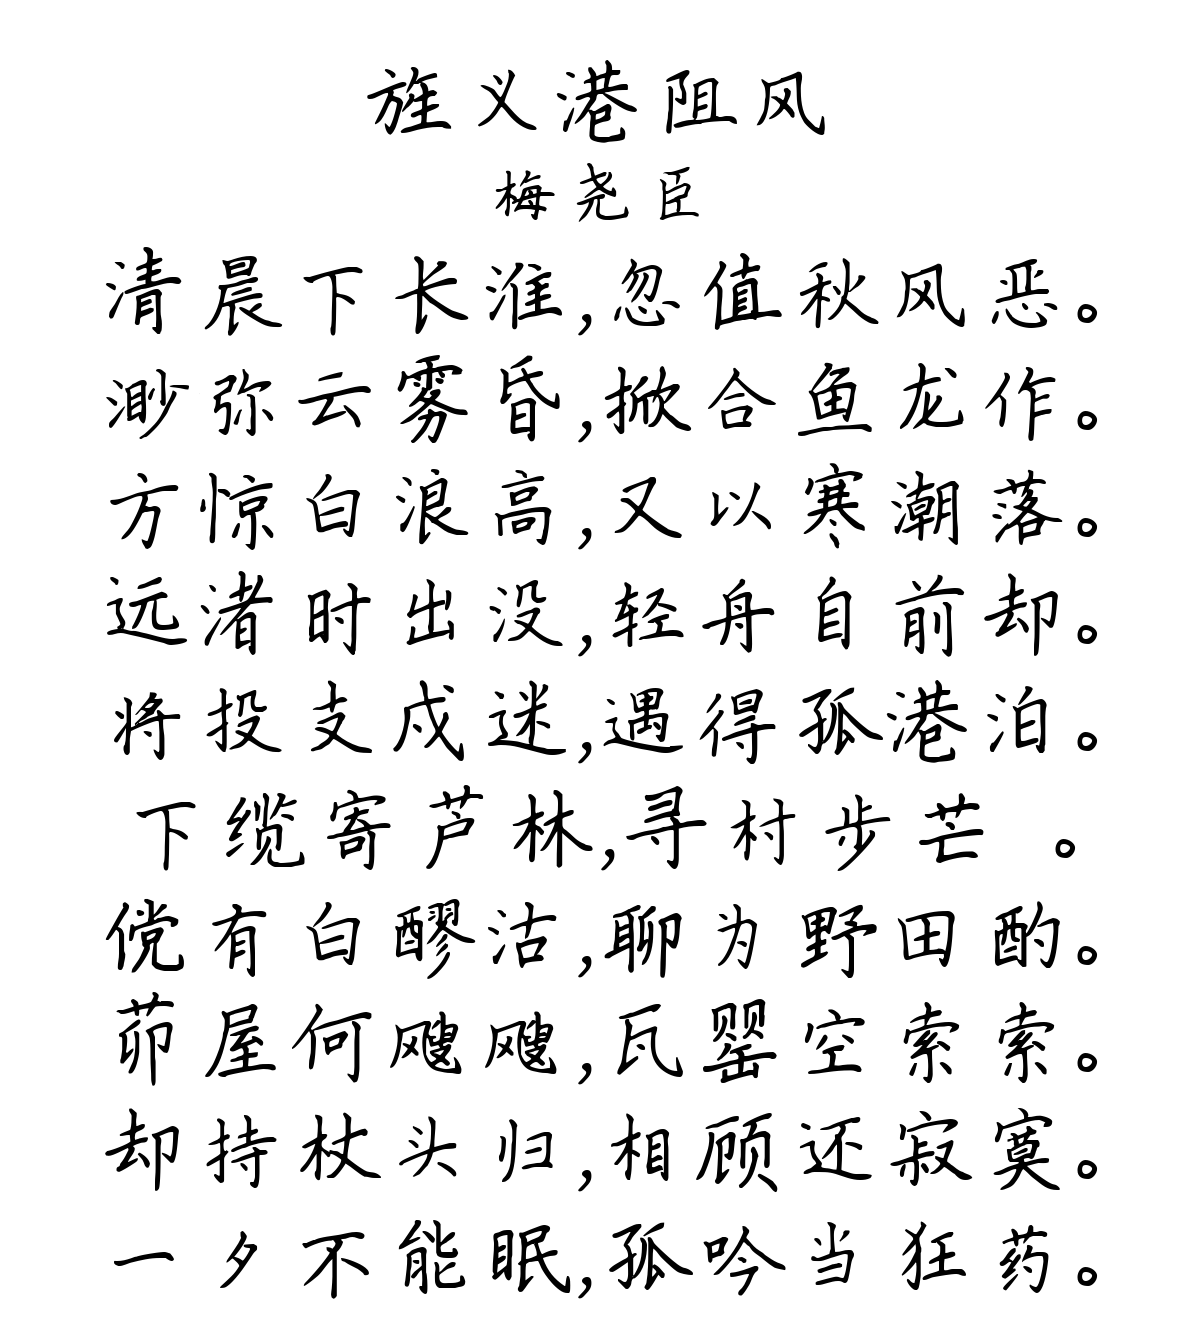 旌义港阻风
梅尧臣
清晨下长淮,忽值秋风恶。
渺弥云雾昏,掀合鱼龙作。
方惊白浪高,又以寒潮落。
远渚时出没,轻舟自前却。
将投支戍迷,遇得孤港泊。
下缆寄芦林,寻村步芒 。
傥有白醪沽,聊为野田酌。
茆屋何飕飕,瓦罂空索索。
却持杖头归,相顾还寂寞。
一夕不能眠,孤吟当狂药。